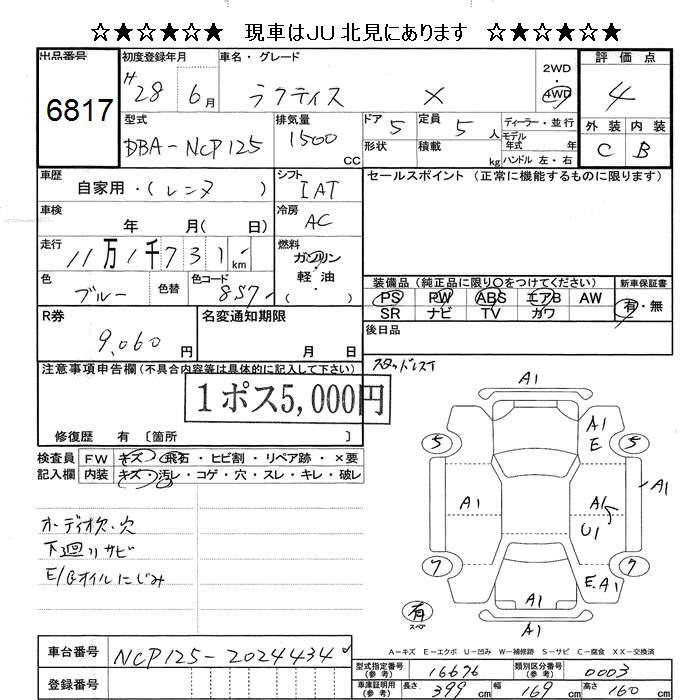 ☆★☆★☆★☆ 現車はJU北見にあります ☆★☆★☆★☆
出品番号 初度登録年月 車名・グレード 2WD 4WD 評価点
6817 H 28 6月 ラクティス X 4
型式 排気量 ドア 定員 ディーラー・並行 外装 内装
DBA-NCP125 1500 CC 5 5人 モデル年式 年 C B
形状 積載 kg ハンドル 左・右
車歴 シフト セールスポイント (正常に機能するものに限ります)
自家用・(レンヌ ) IAT
車検 年 月( 日) 冷房 AC
走行 11万1千731 km 燃料 ガソリン・軽油・( )
色 ブルー 色替 色コード 857
装備品 (純正品に限り○をつけてください) 新車保証書
PS PW ABS エアB AW 有・無
SR ナビ TV カワ
R券 9,060円 名変通知期限 月 日
後日品
スタッドレス1
注意事項申告欄 (不具合内容等は具体的に記入して下さい)
1ポス5,000円
修復歴 有 〔箇所 〕
検査員記入欄 FW キズ・飛石・ヒビ割・リペア跡・×要
内装 キズ・汚レ・コゲ・穴・スレ・キレ・破レ
オーディオ欠・穴
下廻りサビ
E/Gオイルにじみ
A1
A1
E
5 5
A1
A1 A1
U1
7 7
E.A1
A1 A1
有 スペア
A1
A-キズ E-エクボ U-凹み W-補修跡 S-サビ C-腐食 XX-交換済
車台番号 NCP125-2024434
登録番号
型式指定番号(参考) 16676 類別区分番号(参考) 0003
車庫証明用(参考) 長さ 399 cm 幅 169 cm 高さ 160 cm